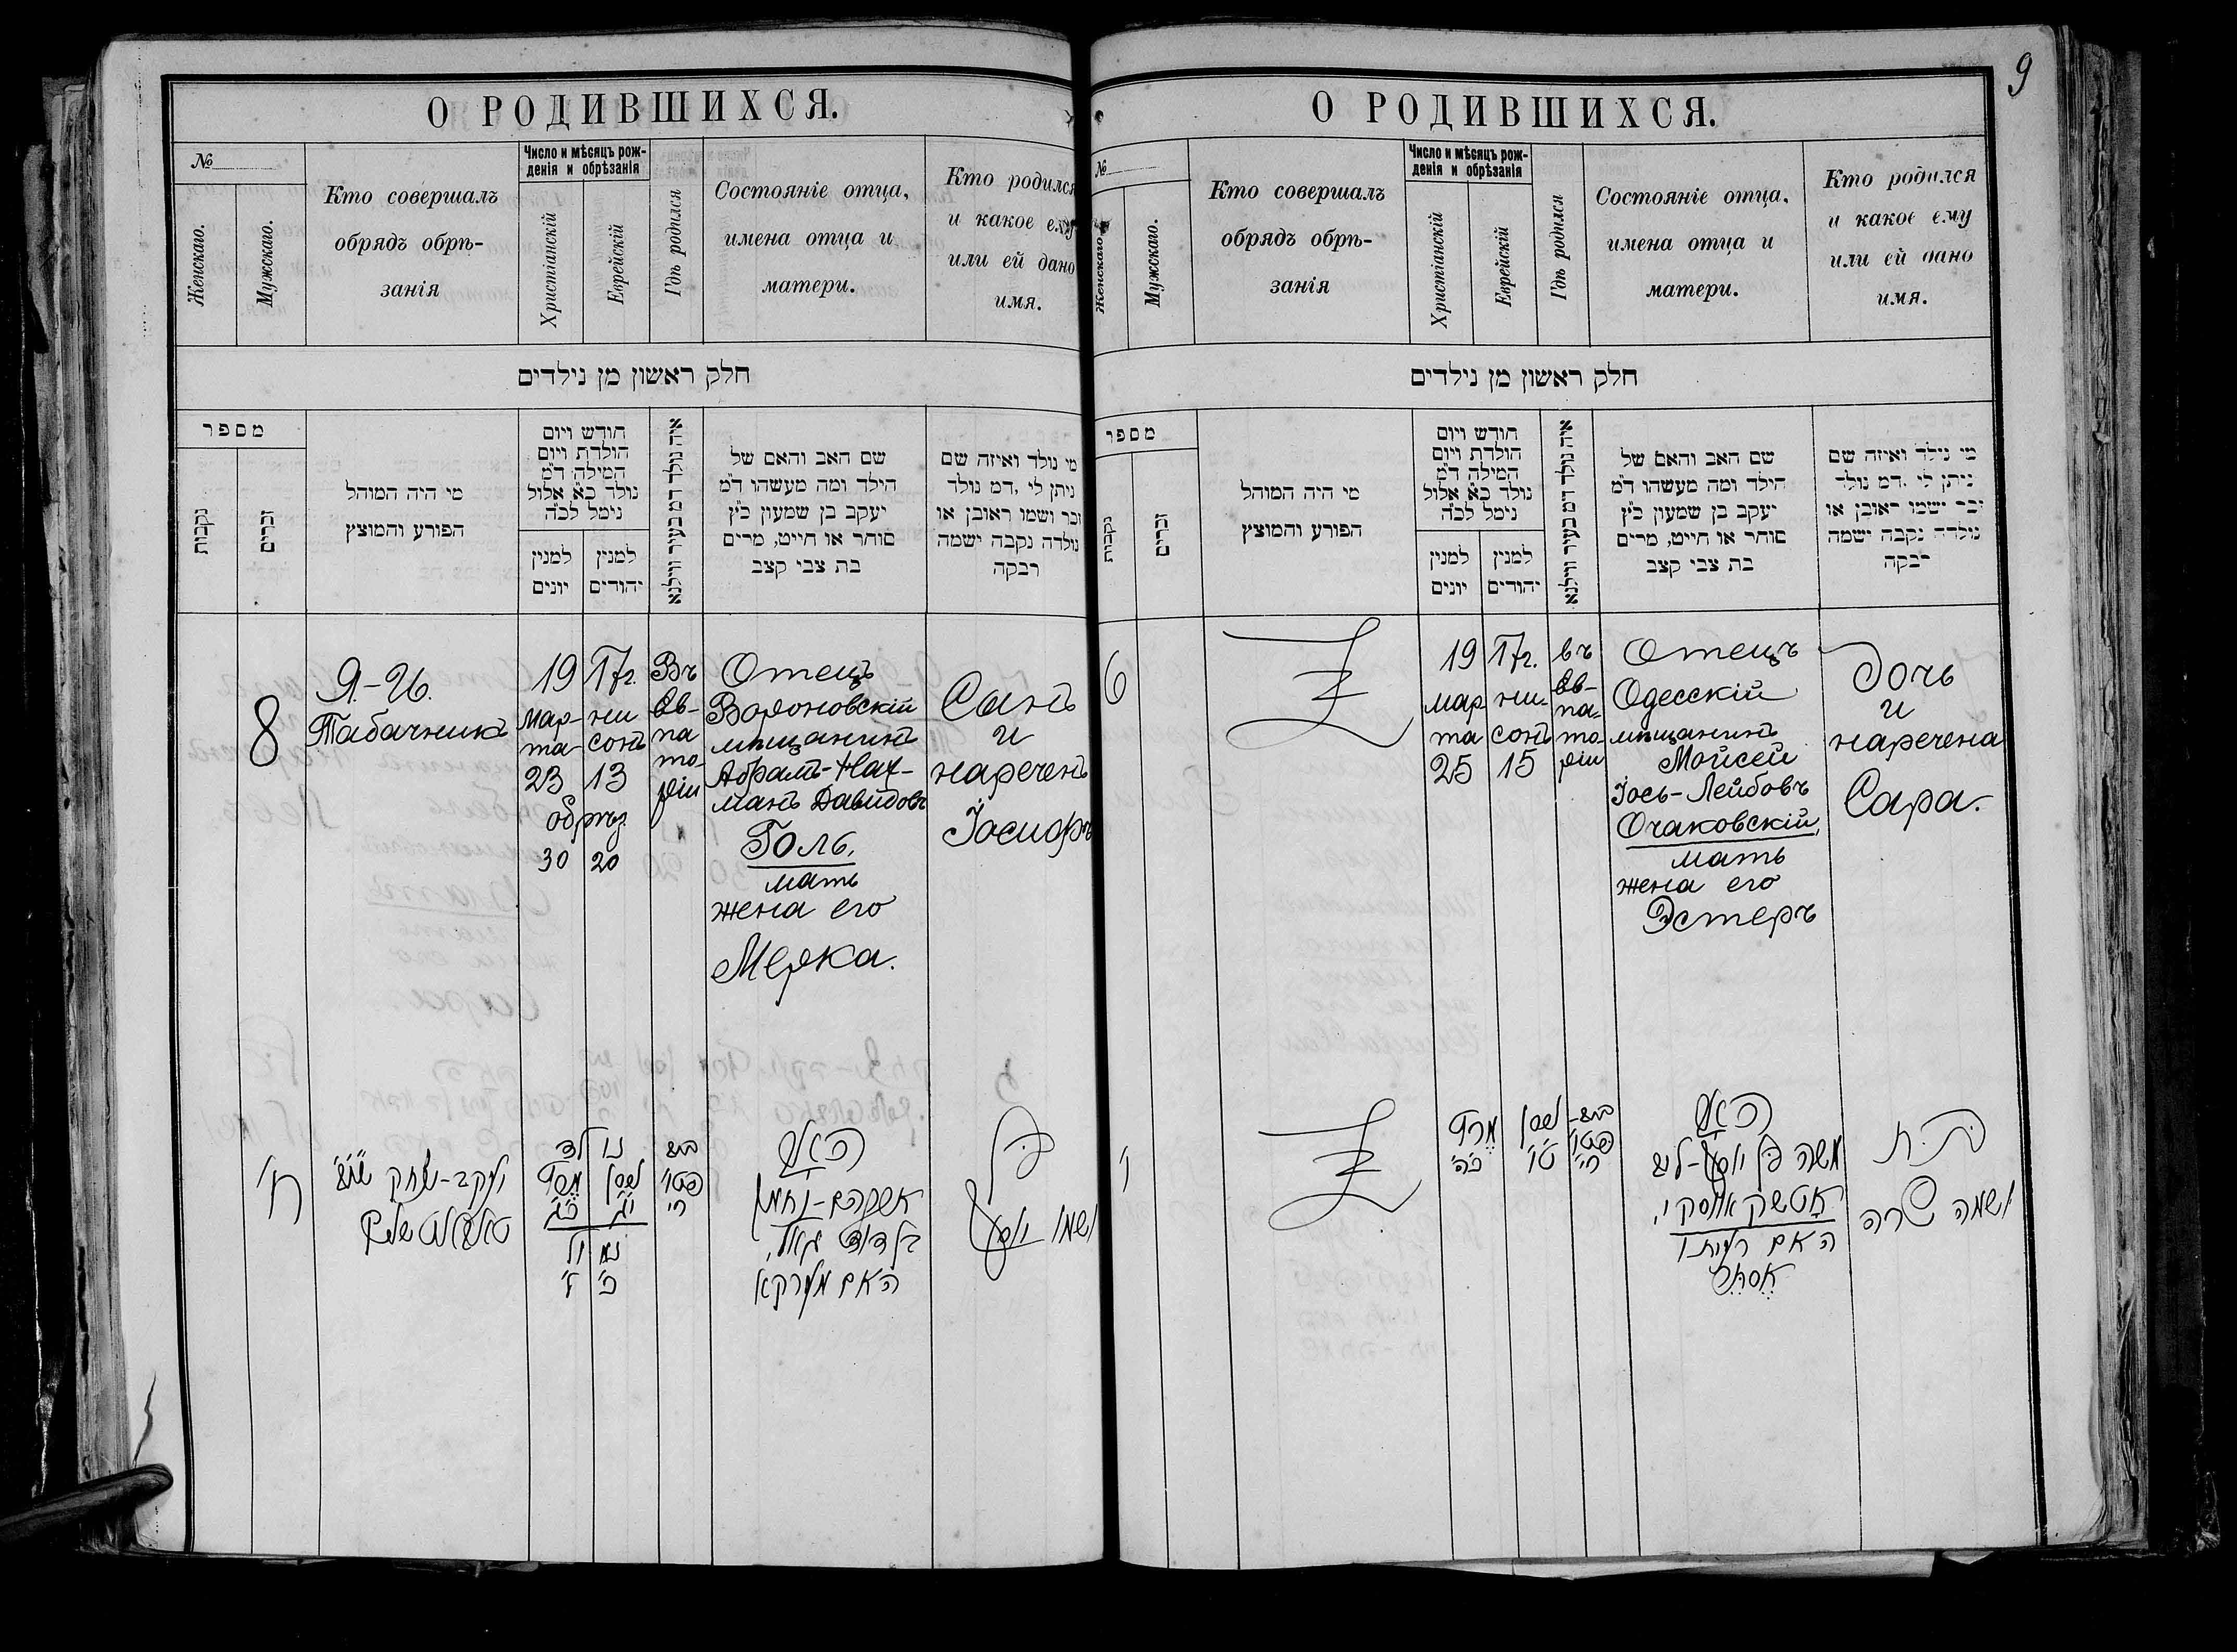 9
О РОДИВШИХСЯ.
№
Женскаго.
Мужскаго.
Кто совершалъ
обрядъ обрѣ-
занія
Число и мѣсяцъ рож-
денія и обрѣзанія
Христіанскій
Еврейскій
Годъ родился
Состояніе отца,
имена отца и
матери.
Кто родился
и какое ему
или ей дано
имя.
חלק ראשון מן נילדים
מספר
נקבות
זכרים
מי היה המוהל
הפורע והמוצץ
חודש ויום
הולדת ויום
המילה ד״מ
נולד כ״א אלול
נימל לכ״ה
למנין
יונים
למנין
יהודים
איה נולד דמ בעיר ווילנא
שם האב והאם של
הילד ומה מעשהו ד״מ
יעקב בן שמעון כ״ץ
סוחר או חייט, מרים
בת צבי קצב
מי נולד ואיזה שם
ניתן לי דמ נולד
זכר ושמו ראובן או
נולדה נקבה ושמה
רבקה
8
Я.-И.
Табачникъ
19
мар-
та
23
17г.
ни
сонъ
13
обрѣз.
30 20
Въ
Ев-
па
то-
ріи
Отецъ
Вороновскій
мѣщанинъ
Абрамъ-Нах-
манъ Давидовъ
Голь.
мать
жена его
Мерка.
Сынъ
и
нареченъ
Іосифъ
ח׳
יעקב-יצחק
נו לד
ניסן
י״ג כ״ג
נמ ול
כ׳ ל׳
האב
אברהם-נחמן
האם מערקא
בן
ושמו יוסף
О РОДИВШИХСЯ.
№
Женскаго
Мужскаго.
Кто совершалъ
обрядъ обрѣ-
занія
Число и мѣсяцъ рож-
денія и обрѣзанія
Христіанскій
Еврейскій
Годъ родился
Состояніе отца,
имена отца и
матери.
Кто родился
и какое ему
или ей дано
имя.
חלק ראשון מן נילדים
מספר
נקבות
זכרים
מי היה המוהל
הפורע והמוצץ
חודש ויום
הולדת ויום
המילה ד״מ
נולד כ״א אלול
נימל לכ״ה
למנין
יונים
למנין
יהודים
איה נולד דמ בעיר ווילנא
שם האב והאם של
הילד ומה מעשהו ד״מ
יעקב בן שמעון כ״ץ
סוחר או חייט, מרים
בת צבי קצב
מי נולד ואיזה שם
ניתן לי דמ נולד
זכר ושמו ראובן או
נולדה נקבה ושמה
רבקה
6
19
мар
та
25
17г.
ни-
сонъ
15
въ
Ев-
па-
то-
ріи
Отецъ
Одесскій
мѣщанинъ
Мойсей
Іось-Лейбовъ
Очаковскій,
мать
жена его
Эстеръ
дочь
и
наречена
Сара.
ו
מרץ
כ״ה
ניסן
ט״ו
האב
משה בן יוסף-ליב
האם רעיתו
אסתר
בת
ושמה שרה